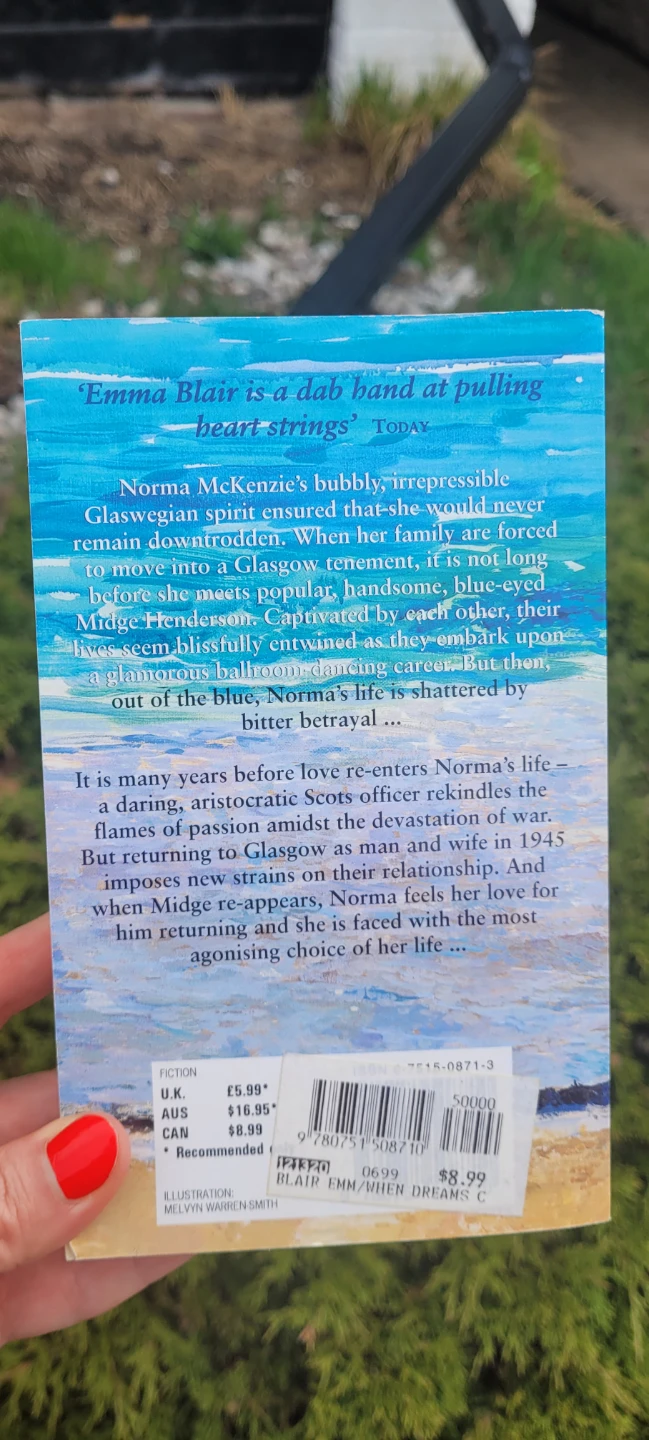 ‘Emma Blair is a dab hand at pulling
heart strings’ TODAY
Norma McKenzie’s bubbly, irrepressible
Glaswegian spirit ensured that she would never
remain downtrodden. When her family are forced
to move into a Glasgow tenement, it is not long
before she meets popular, handsome, blue-eyed
Midge Henderson. Captivated by each other, their
lives seem blissfully entwined as they embark upon
a glamorous ballroom-dancing career. But then,
out of the blue, Norma’s life is shattered by
bitter betrayal ...
It is many years before love re-enters Norma’s life –
a daring, aristocratic Scots officer rekindles the
flames of passion amidst the devastation of war.
But returning to Glasgow as man and wife in 1945
imposes new strains on their relationship. And
when Midge re-appears, Norma feels her love for
him returning and she is faced with the most
agonising choice of her life ...
FICTION
U.K. £5.99*
AUS $16.95*
CAN $8.99
* Recommended
ILLUSTRATION:
MELVYN WARREN-SMITH
7515-0871-3
50000
9 780751 508710
121320 0699 $8.99
BLAIR EMM/WHEN DREAMS C